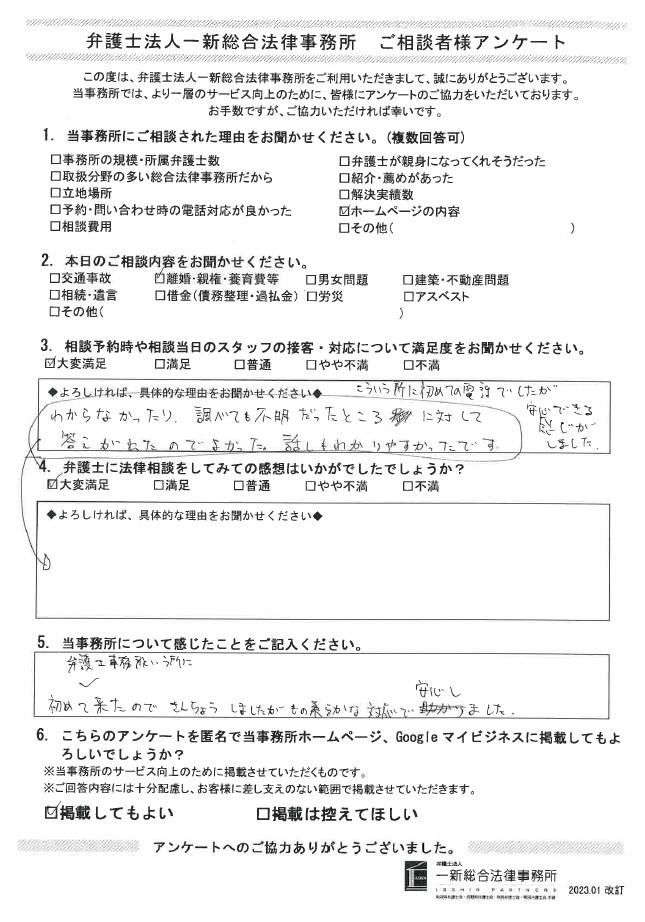 弁護士法人一新総合法律事務所 ご相談者様アンケート
この度は、弁護士法人一新総合法律事務所をご利用いただきまして、誠にありがとうございます。
当事務所では、より一層のサービス向上のために、皆様にアンケートのご協力をいただいております。
お手数ですが、ご協力いただければ幸いです。
1. 当事務所にご相談された理由をお聞かせください。(複数回答可)
□事務所の規模・所属弁護士数 □弁護士が親身になってくれそうだった
□取扱分野の多い総合法律事務所だから □紹介・薦めがあった
□立地場所 □解決実績数
□予約・問い合わせ時の電話対応が良かった ☑ホームページの内容
□相談費用 □その他( )
2. 本日のご相談内容をお聞かせください。
□交通事故 ☑離婚・親権・養育費等 □男女問題 □建築・不動産問題
□相続・遺言 □借金(債務整理・過払金) □労災 □アスベスト
□その他( )
3. 相談予約時や相談当日のスタッフの接客・対応について満足度をお聞かせください。
☑大変満足 □満足 □普通 □やや不満 □不満
◆よろしければ、具体的な理由をお聞かせください◆ こういう所に初めての電話でしたが
安心できる
感じが
しました。
わからなかったり、調べても不明だったところに対して
答えがれたのでよかった。話しもわかりやすかったです。
4. 弁護士に法律相談をしてみての感想はいかがでしたでしょうか?
☑大変満足 □満足 □普通 □やや不満 □不満
◆よろしければ、具体的な理由をお聞かせください◆
5. 当事務所について感じたことをご記入ください。
弁護士事務所という所に
初めて来たので きんちょう しましたが もの柔らかな 対応で 安心しました。
6. こちらのアンケートを匿名で当事務所ホームページ、Googleマイビジネスに掲載してもよ
ろしいでしょうか?
※当事務所のサービス向上のために掲載させていただくものです。
※ご回答内容には十分配慮し、お客様に差し支えのない範囲で掲載させていただきます。
☑掲載してもよい □掲載は控えてほしい
アンケートへのご協力ありがとうございました。
弁護士法人
一新総合法律事務所
ISSHIN PARTNERS
2023.01 改訂